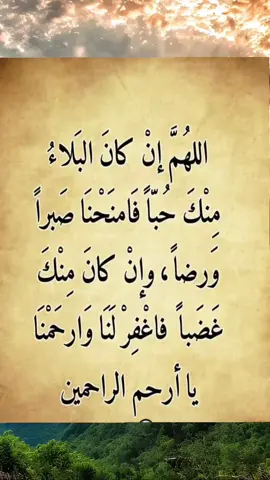 اللهُمَّ إنْ كانَ البَلاءُ
مِنْكَ حُبّاً فَامنَحْنَا صَبراً
وَرضاً، وإنْ كانَ مِنْكَ
غَضَباً فاغْفِرْ لَنَا وَارحَمْنَا
يا أرحم الراحمين